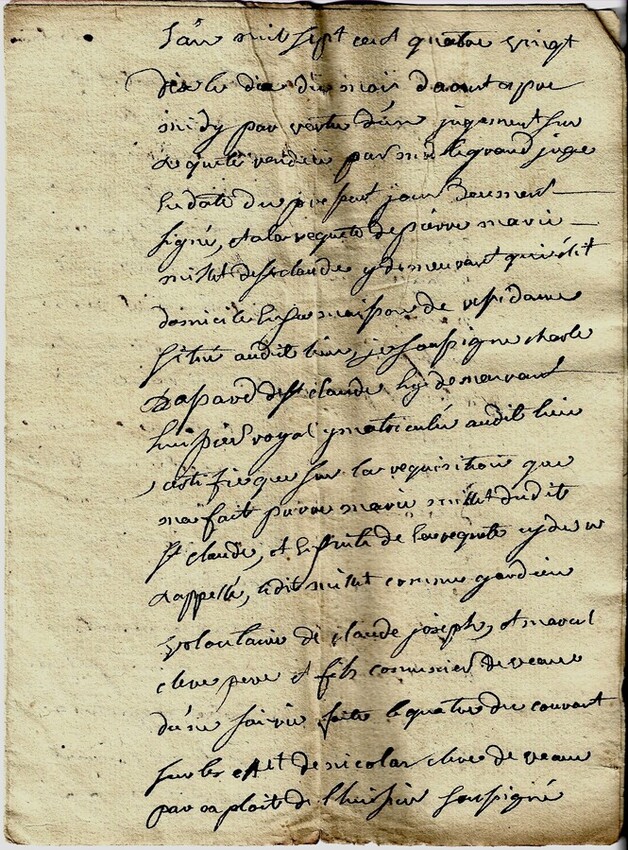 L'an mil sept cent quatre vingt
dix le dix du mois daoust apre
midy par vertu d'un jugement sur
requete rendue par mr le grand juge
en date du present jour deument
signé, et a la requete de pierre marie
millet de st claude y demeurant qui élit
domicile en sa maison de residance
situé audit lieu, je soussigne charle
de st claude hy demeurant
huissier royal ymatriculé audit lieu
certifie que sur la requisition que
ma fait pierre marie millet dudit
st claude, et ensuite de la requete cy dessus
rappellé, ledit millet comme gardien
volontaire de claude joseph, et marcel
pere et fils de
d'une saisie faite le quatre du courant
sur les effet de nicolas de
par exploit de l'huissier soussigné